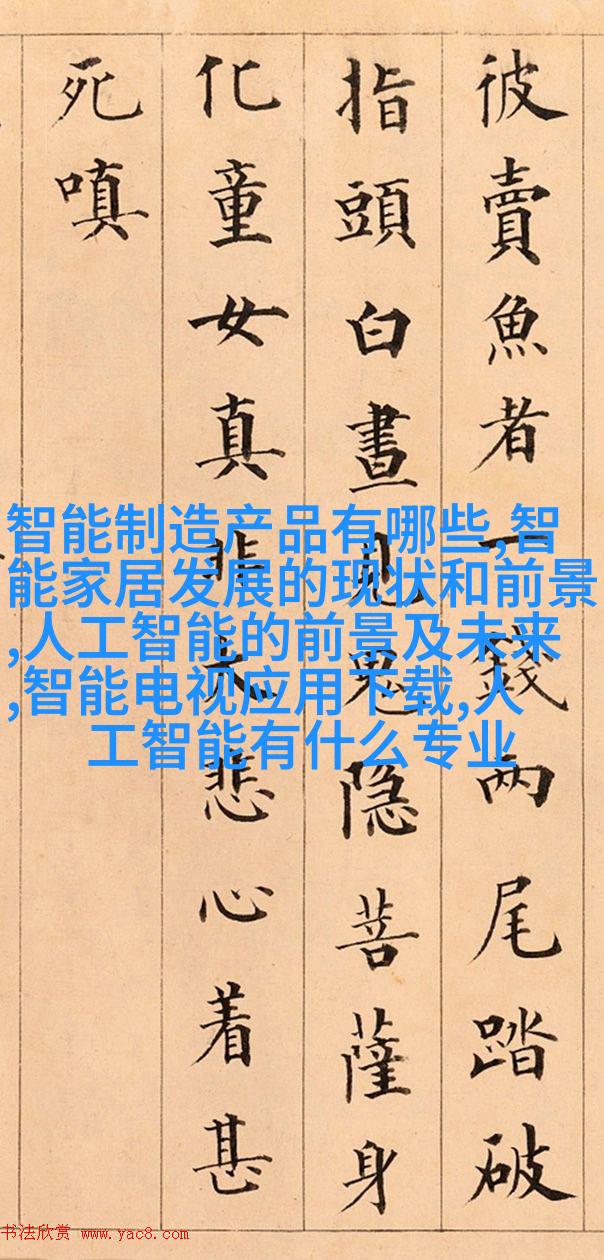 彼賣魚者一錢兩尾踏破
指頭白晝見鬼隐菩薩身
化童女真非悲心着甚
死嗔
智能制造产品有哪些,智
能家居发展的现状和前景
,人工智能的前景及未来
,智能电视应用下载,人
工智能有什么专业
书法欣赏 www.yac8.com